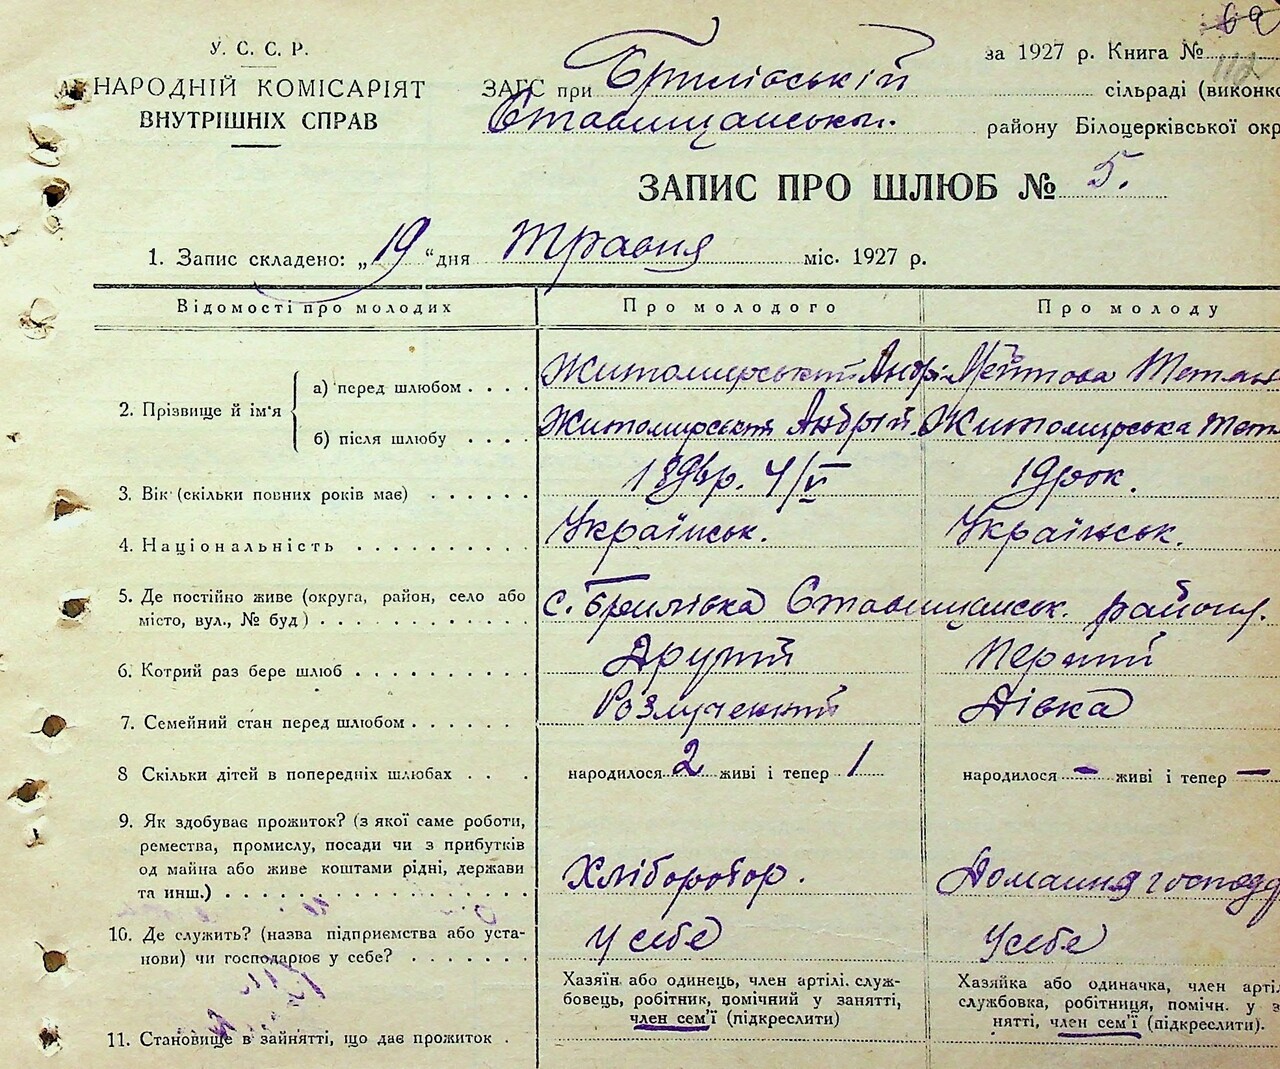 У. С. С. Р.
НАРОДНІЙ КОМІСАРІЯТ
ВНУТРІШНІХ СПРАВ
за 1927 р. Книга №
112
ЗАГС при Брилівській сільраді (виконко
Ставищанськом. району Білоцерківської окр
ЗАПИС ПРО ШЛЮБ № 5.
1. Запис складено: „19“ дня травня міс. 1927 р.
Відомості про молодих Про молодого Про молоду
2. Прізвище й ім'я
а) перед шлюбом Житомирський Андрі Тетян
б) після шлюбу Житомирський Андрій. Житомирська Тет
3. Вік (скільки повних років має) 19 рок.
4. Національність Українськ. Українськ.
5. Де постійно живе (округа, район, село або
місто, вул., № буд) с. Брилівка Ставищанськ. району.
6. Котрий раз бере шлюб Другий Перший
7. Семейний стан перед шлюбом Розлучений Дівка
8 Скільки дітей в попередніх шлюбах народилося 2 живі і тепер 1 народилося - живі і тепер -
9. Як здобуває прожиток? (з якої саме роботи,
ремества, промислу, посади чи з прибутків
од майна або живе коштами рідні, держави
та инш.) Хлібороб. Домашня господ
10. Де служить? (назва підприємства або уста-
нови) чи господарює у себе? У себе У себе
11. Становище в зайнятті, що дає прожиток
Хазяїн або одинець, член артілі. служ-
бовець, робітник, помічний у занятті,
член сем'ї (підкреслити)
Хазяйка або одиначка, член арті
службовка, робітниця, помічн. у з
нятті, член сем'ї (підкреслити).